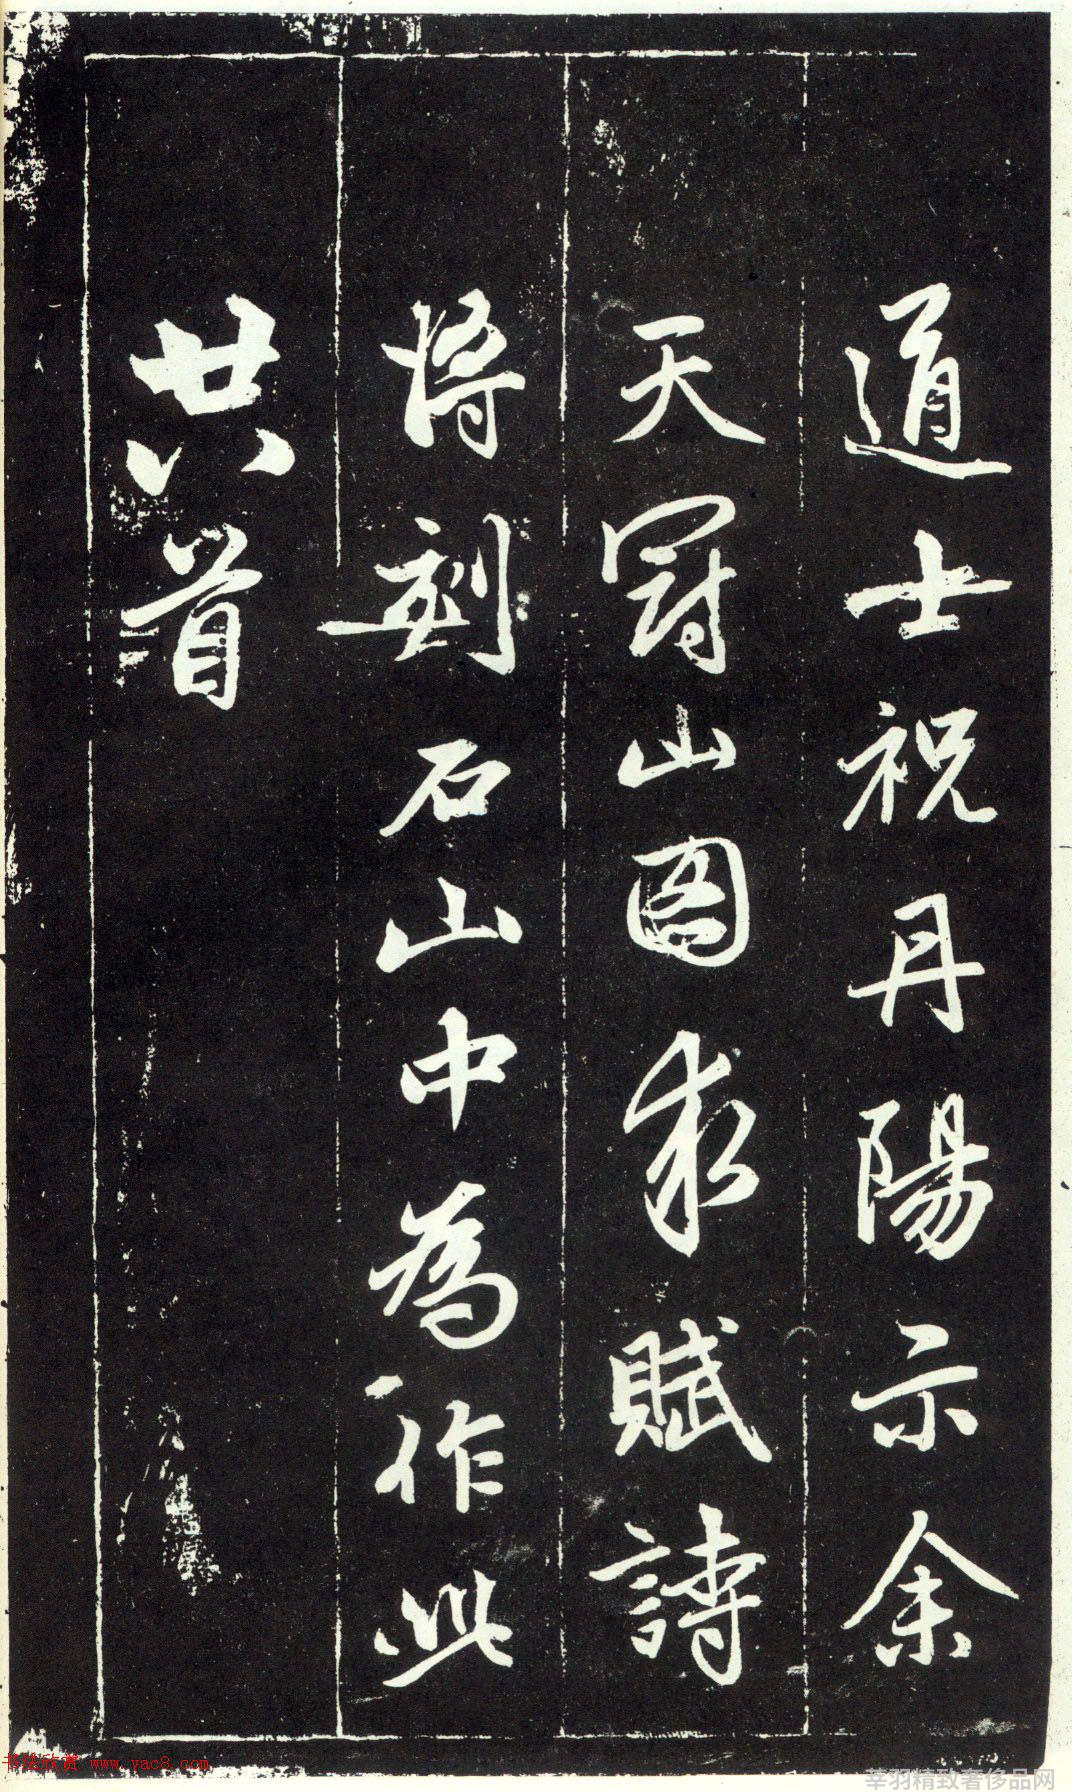 道士祝丹陽示余
天冠山圖求賦詩
將刻石山中為作此
廿八首
书法欣赏 www.yac8.com
莘羽精致奢侈品网